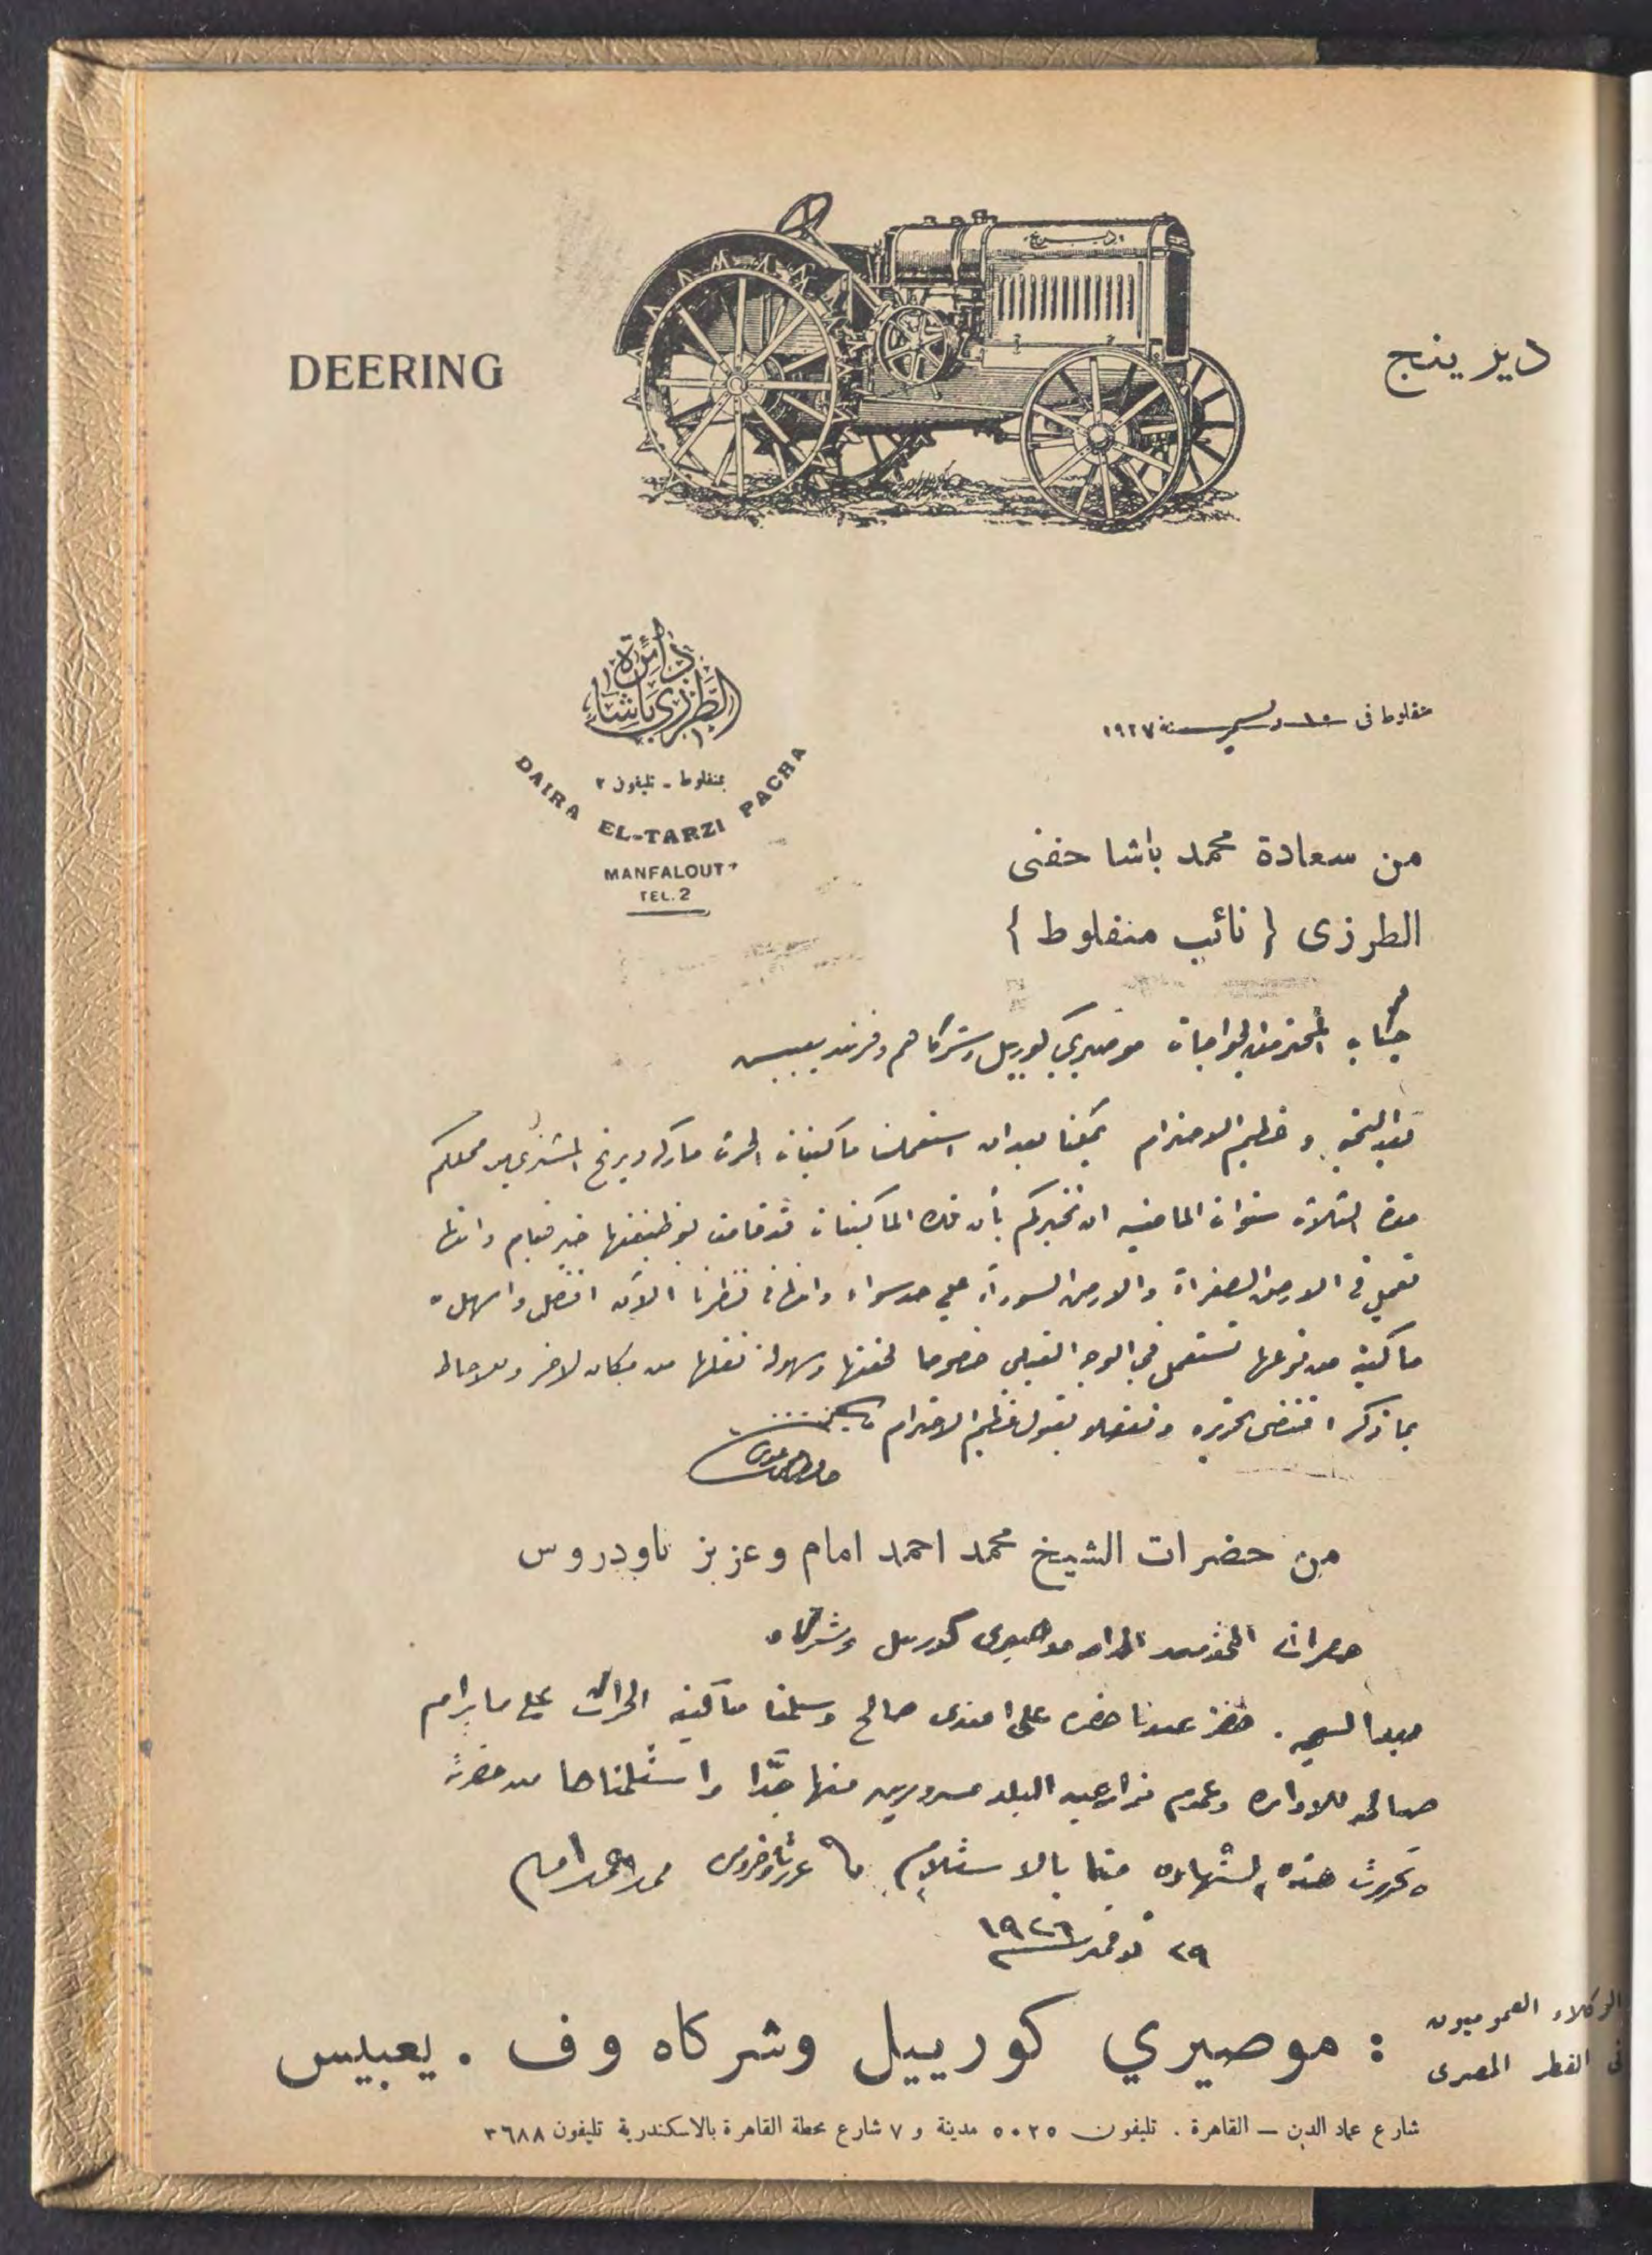 DEERING
ديرينج
ديرينج
دائرة
الطرزي باشا
بمنفلوط - تليفون ٢
DAIRA EL-TARZI PACHA
MANFALOUT
TEL. 2
منفلوط فى ١٥ دسمبر سنة ١٩٢٧
من سعادة محمد باشا حفنى
الطرزى { نائب منفلوط }
جناب المحترمين الخواجات موصيري كورييل وشركاهم وفرند يعبيس
بعد التحية وعظيم الاحترام يمكننا بعد ان استعملنا ماكينات الحرث ماركه ديرنج المشترى من محلكم
مدة الثلاث سنوات الماضيه ان نخبركم بأن تلك الماكينات قد قامت بوظيفتها خير قيام وانها
تعمل فى الارض الصفراء والارض السوداء على حد سواء وانها فى نظرنا الآن افضل واسهل
ماكينة من نوعها تستعمل في الوجه القبلي خصوصا لخفتها وسهولة نقلها من مكان لاخر وللاحاطه
بما ذكر اقتضى تحريره وتفضلو بقبول عظيم الاحترام
من حضرات الشيخ محمد احمد امام وعزيز تاودروس
حضرات المحترمين موصيرى كورييل وشركاه
بعد التحيه . حضر عندنا حضره على افندى صالح وسلمنا ماكينة الحراث على ما يرام
صالحه للاداره وعموم مزارعين البلد مسرورين منها جدا واستلمناها من حضرته
وتحررت هذه الشهاده منا بالاستلام عزيز تاودروس محمد احمد امام
٢٩ نوفمبر ١٩٢٦
الوكلاء العموميون
فى القطر المصرى
: موصيري كورييل وشركاه وف . يعبيس
شارع عماد الدين — القاهرة . تليفون ٥٠٢٥ مدينة و ٧ شارع محطة القاهرة بالاسكندرية تليفون ٣٦٨٨